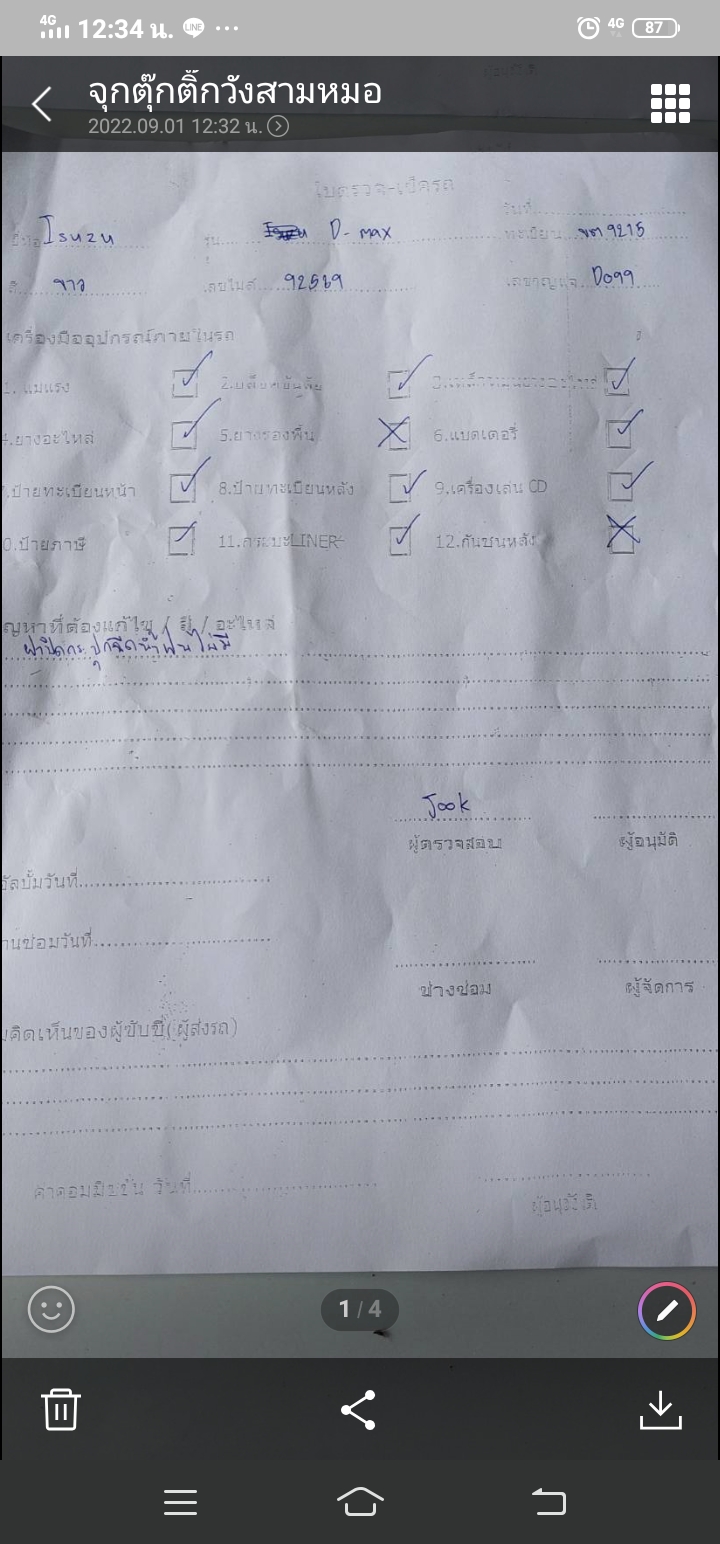 4G 12:34 น. LINE 4G 87
จุกตุ๊กติ๊กวังสามหมอ
2022.09.01 12:32 น.
ใบตรวจ-เช็ครถ
วันที่
ยี่ห้อ Isuzu รุ่น D-max ทะเบียน 9215
สี ขาว เลขไมล์ 92569 เลขกุญแจ D099
เครื่องมืออุปกรณ์ภายในรถ
1. แม่แรง
4.ยางอะไหล่ 5.ยางรองพื้น 6.แบตเตอรี่
.ป้ายทะเบียนหน้า 8.ป้ายทะเบียนหลัง 9.เครื่องเล่น CD
0.ป้ายภาษี 11.กระบะLINER 12.กันชนหลัง
ญหาที่ต้องแก้ไข / สี / อะไหล่
ฝาปิดกระปุกฉีดน้ำฝนไม่มี
Jook
ผู้ตรวจสอบ ผู้อนุมัติ
วันที่
านซ่อมวันที่
ช่างซ่อม ผู้จัดการ
มคิดเห็นของผู้ขับขี่(ผู้ส่งรถ)
ค่าคอมมิชชั่น วันที่
ผู้อนุมัติ
1 / 4